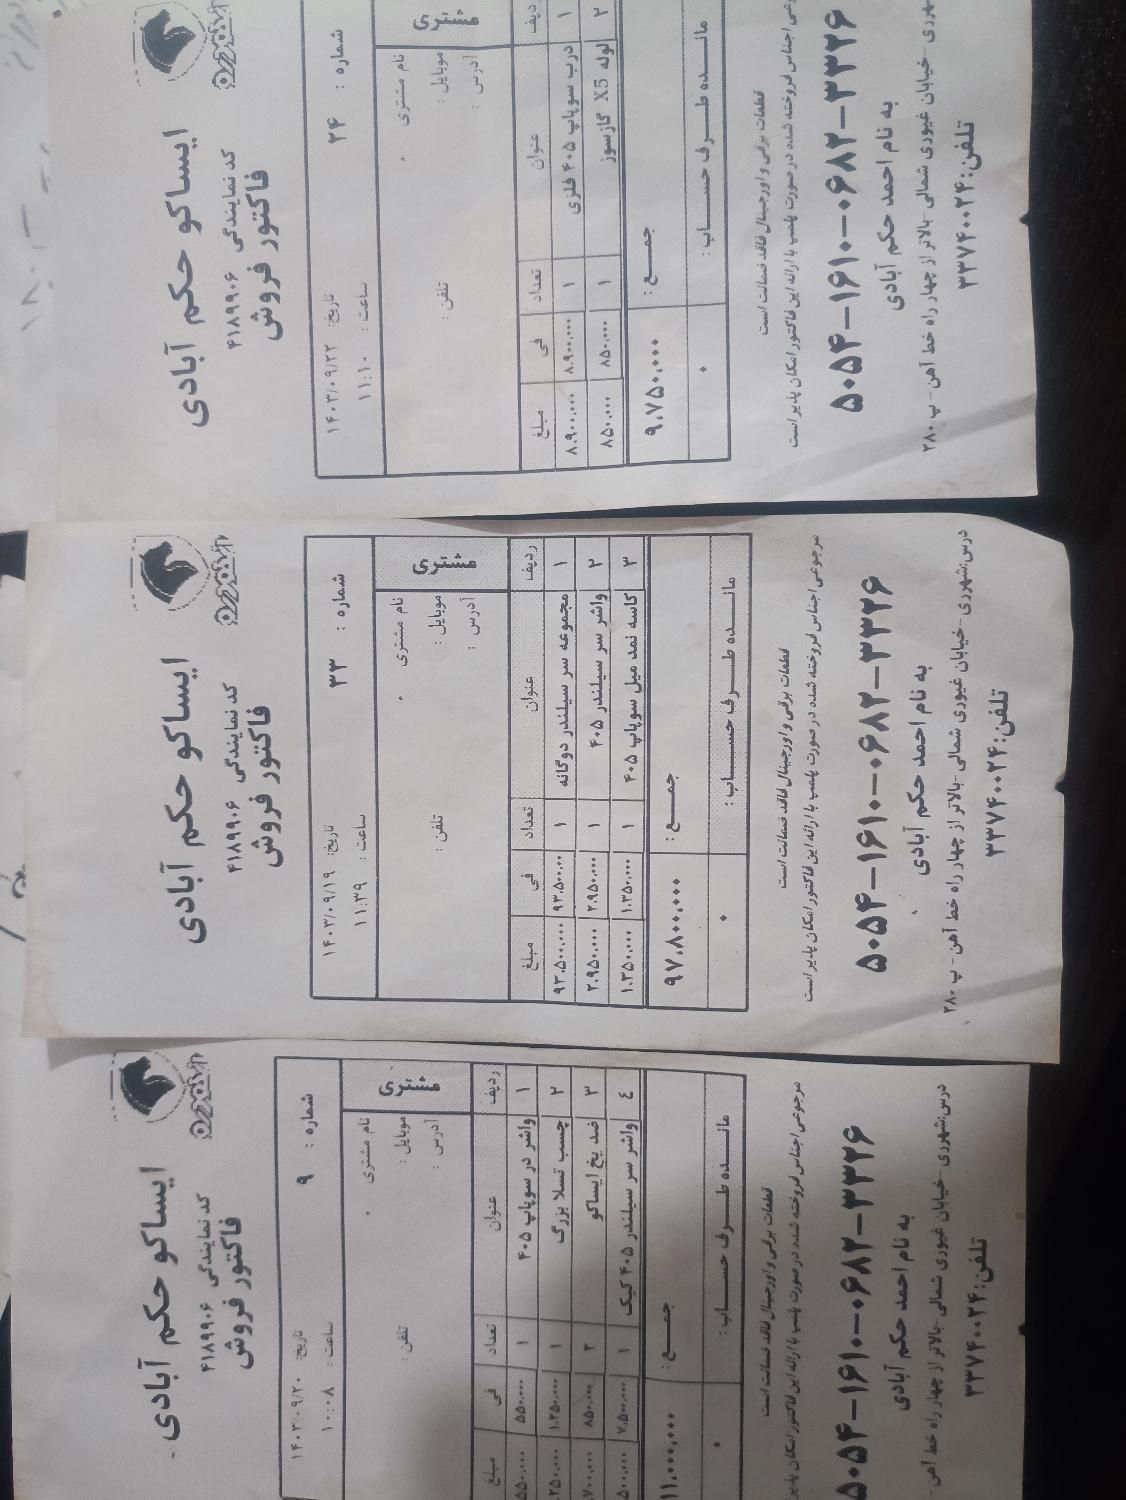 ایساکو حکم آبادی
کد نمایندگی ۴۱۸۹۹۰۶
فاکتور فروش
شماره : ۲۴ تاریخ: ۱۴۰۳/۰۹/۲۲
ساعت : ۱۱:۱۰
مشتری
نام مشتری
موبایل : تلفن :
آدرس :
ردیف عنوان تعداد فی مبلغ
۱ درب سوپاپ ۴۰۵ فلزی ۱ ۸.۹۰۰.۰۰۰ ۸.۹۰۰.۰۰۰
۲ لوله X5 گازسوز ۱ ۸۵۰.۰۰۰ ۸۵۰.۰۰۰
جمع : ۹.۷۵۰.۰۰۰
مانده طرف حساب : ۰
قطعات برقی و اورجینال فاقد ضمانت است
اجناس فروخته شده در صورت پلمپ با ارائه این فاکتور امکان پذیر است
۵۰۵۴-۱۶۱۰-۰۶۸۲-۳۳۲۶
به نام احمد حکم آبادی
شهرری - خیابان غیوری شمالی - بالاتر از چهار راه خط آهن - پ ۲۸۰
تلفن: ۳۳۷۴۰۰۲۴
ایساکو حکم آبادی
کد نمایندگی ۴۱۸۹۹۰۶
فاکتور فروش
شماره : ۳۳ تاریخ: ۱۴۰۳/۰۹/۱۹
ساعت : ۱۱:۳۹
مشتری
نام مشتری
موبایل : تلفن :
آدرس :
ردیف عنوان تعداد فی مبلغ
۱ مجموعه سر سیلندر دوگانه ۱ ۹۳.۵۰۰.۰۰ ۹۳.۵۰۰.۰۰۰
۲ واشر سر سیلندر ۴۰۵ ۱ ۲.۹۵۰.۰۰۰ ۲.۹۵۰.۰۰۰
۳ کاسه نمد میل سوپاپ ۴۰۵ ۱ ۱.۳۵۰.۰۰۰ ۱.۳۵۰.۰۰۰
جمع : ۹۷.۸۰۰.۰۰۰
مانده طرف حساب : ۰
قطعات برقی و اورجینال فاقد ضمانت است
مرجوعی اجناس فروخته شده در صورت پلمپ با ارائه این فاکتور امکان پذیر است
۵۰۵۴-۱۶۱۰-۰۶۸۲-۳۳۲۶
به نام احمد حکم آبادی
درس:شهرری - خیابان غیوری شمالی - بالاتر از چهار راه خط آهن - پ ۲۸۰
تلفن: ۳۳۷۴۰۰۲۴
ایساکو حکم آبادی
کد نمایندگی ۴۱۸۹۹۰۶
فاکتور فروش
شماره : ۹ تاریخ: ۱۴۰۳/۰۹/۲۰
ساعت : ۱۰:۰۸
مشتری
نام مشتری
موبایل : تلفن :
آدرس :
ردیف عنوان تعداد فی مبلغ
۱ واشر در سوپاپ ۴۰۵ ۱ ۵۵۰.۰۰۰ ۵۵۰.۰۰۰
۲ چسب تسلا بزرگ ۱ ۱.۲۵۰.۰۰۰
۳ ضد یخ ایساکو ۲ ۸۵۰.۰۰۰
٤ واشر سر سیلندر ۴۰۵ کیک ۱ ۷.۵۰۰.۰۰۰
جمع : ۱۱.۰۰۰.۰۰۰
مانده طرف حساب : ۰
قطعات برقی و اورجینال فاقد ضمانت است
مرجوعی اجناس فروخته شده در صورت پلمپ با ارائه این فاکتور امکان پذیر
۵۰۵۴-۱۶۱۰-۰۶۸۲-۳۳۲۶
به نام احمد حکم آبادی
درس:شهرری - خیابان غیوری شمالی - بالاتر از چهار راه خط آهن -
تلفن: ۳۳۷۴۰۰۲۴